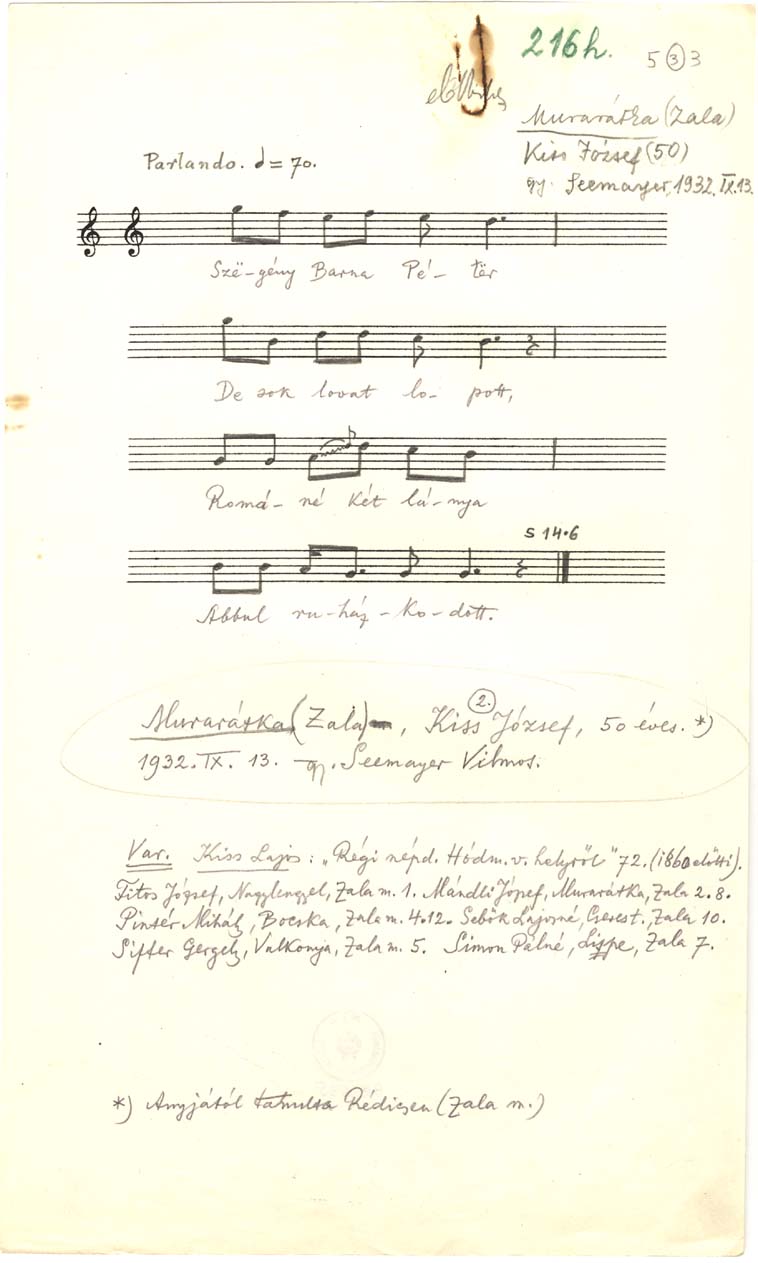 216h. 5 3 3
Murarátka (Zala)
Kiss József (50)
gy. Seemayer, 1932. IX. 13.
Parlando. = 70.
Szë-gény Barna Pé- tër
De sok lovat lo- pott,
Romá- né két lá- nya
S 14•6
Abbul ru-ház-ko-dott.
2.
Murarátka (Zala), Kiss József, 50 éves. *)
1932. IX. 13. gy. Seemayer Vilmos.
Var. Kiss Lajos: „Régi népd. Hódm.v.helyről" 72. (1860 előtti).
Titos József, Nagylengyel, Zala m. 1. Mándli József, Murarátka, Zala 2.8.
Pintér Mihály, Bocska, Zala m. 4.12. Sebők Lajosné, Cserest., Zala 10.
Sifter Gergely, Valkonya, Zala m. 5. Simon Pálné, Lispe, Zala 7.
*) Anyjától tanulta Rédicsen (Zala m.)